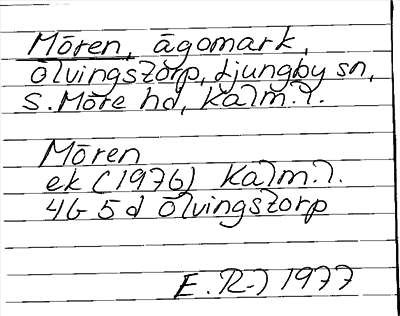 Mören, ägomark,
Ölvingstorp, Ljungby sn,
S. Möre hd, Kalm. l.
Mören
ek (1976) Kalm. l.
4G 5d Ölvingstorp
E. R-) 1977